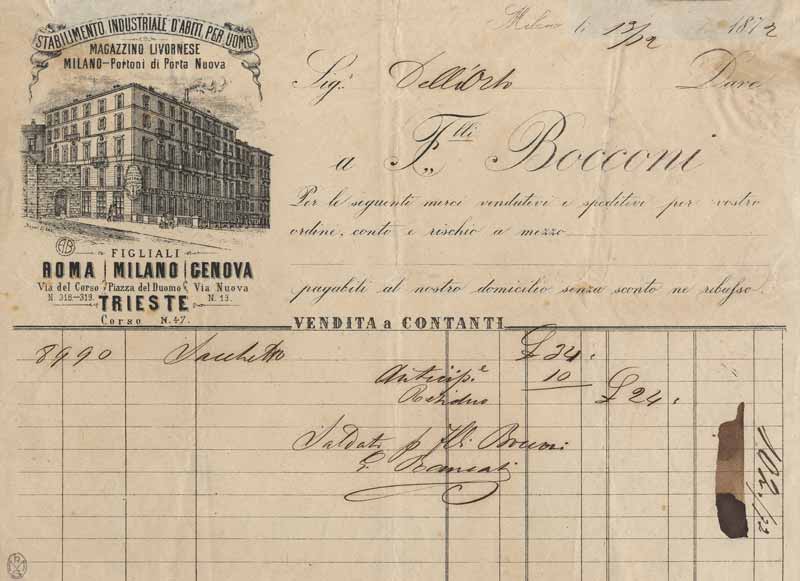 STABILIMENTO INDUSTRIALE D'ABITI PER UOMO
MAGAZZINO LIVORNESE
MILANO-Portoni di Porta Nuova
FIGLIALI
ROMA MILANO GENOVA
Via del Corso Piazza del Duomo Via Nuova
N. 318.-319. N. 13.
TRIESTE
Corso N. 47.
Milano li 13/12 1872
Sigr. Dell'Orto Dare
a F.lli Bocconi
Per le seguenti merci vendutevi e speditevi per vostro
ordine, conto e rischio a mezzo
pagabili al nostro domicilio senza sconto ne ribasso.
VENDITA a CONTANTI
8990 Sacchetto £ 34:
Anticipe. 10
Residuo £ 24:
Saldato p F.lli Bocconi